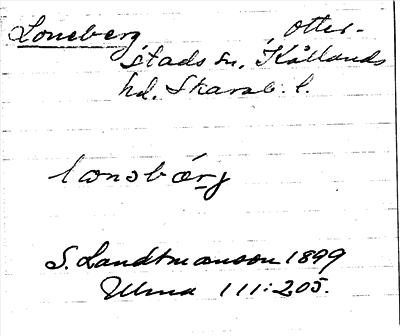 Loneberg Otter-
stads sn, Kållands
hd. Skarab. l.
lonsbærj
S. Landtmanson 1899
Ulma 111:205.